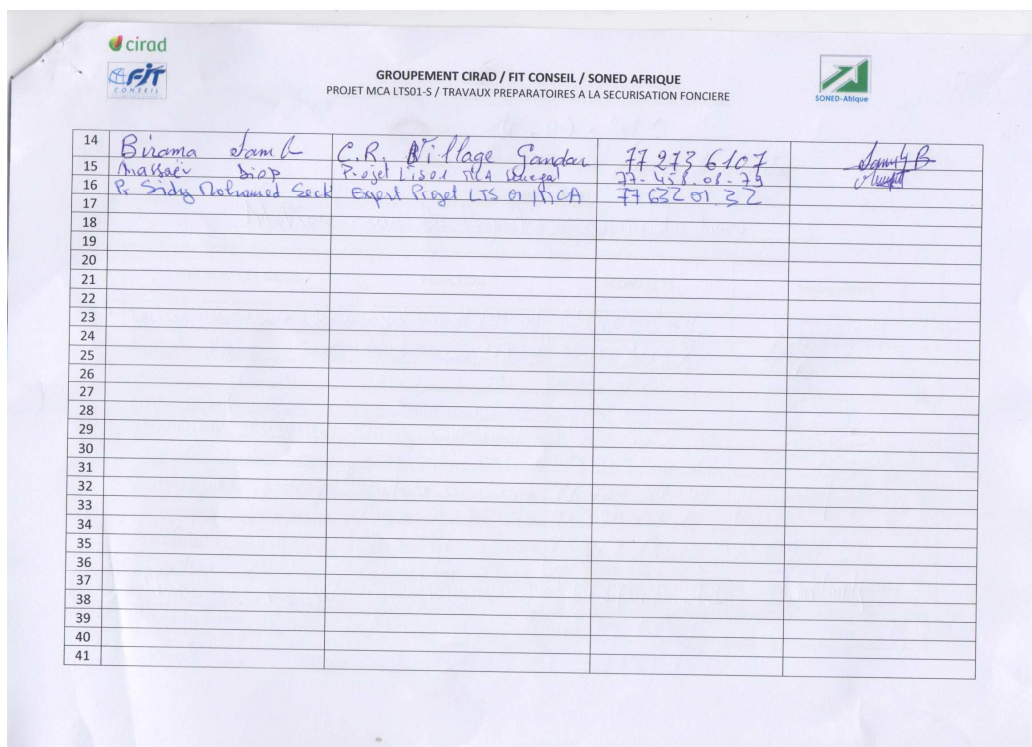 cirad
FIT
CONSEIL
GROUPEMENT CIRAD / FIT CONSEIL / SONED AFRIQUE
PROJET MCA LTS01-S / TRAVAUX PREPARATOIRES A LA SECURISATION FONCIERE
SONED-Afrique
14 Birama Samb C.R. Village Gandon 77 273 6107
15 Massaër Diop Projet LTS01 MCA Sénégal 77-458.08-79
16 Pr Sidy Mohamed Seck Expert Projet LTS 01 MCA 77 632 01 32
17
18
19
20
21
22
23
24
25
26
27
28
29
30
31
32
33
34
35
36
37
38
39
40
41